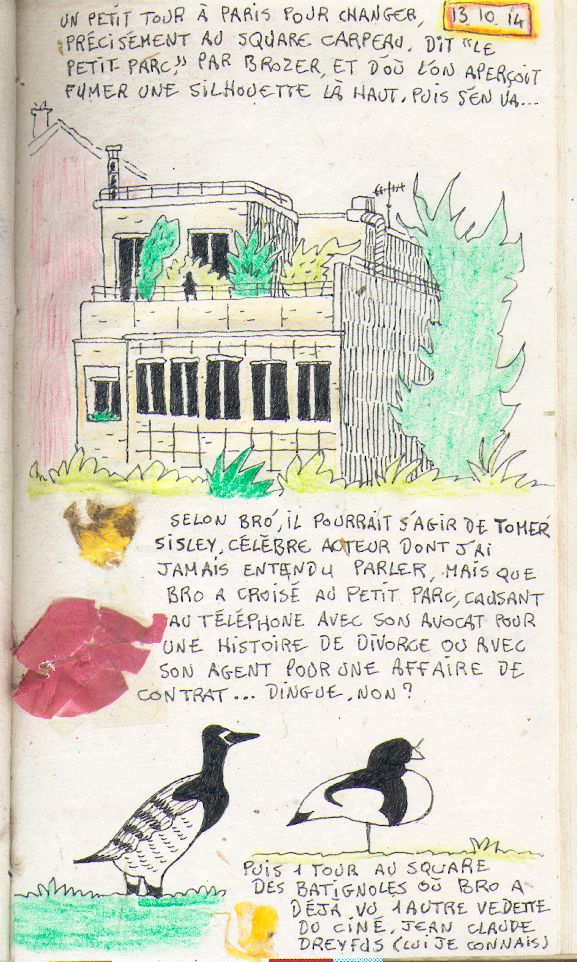 UN PETIT TOUR À PARIS POUR CHANGER,
13.10.14
PRÉCISÉMENT AU SQUARE CARPEAU, DIT "LE
PETIT PARC," PAR BROZER, ET D'OÙ L'ON APERÇOIT
FUMER UNE SILHOUETTE LÀ HAUT. PUIS S'EN VA...
SELON BRO, IL POURRAIT S'AGIR DE TOMER
SISLEY, CÉLÈBRE ACTEUR DONT J'AI
JAMAIS ENTENDU PARLER, MAIS QUE
BRO A CROISÉ AU PETIT PARC, CAUSANT
AU TÉLÉPHONE AVEC SON AVOCAT POUR
UNE HISTOIRE DE DIVORCE OU AVEC
SON AGENT POUR UNE AFFAIRE DE
CONTRAT... DINGUE, NON?
PUIS 1 TOUR AU SQUARE
DES BATIGNOLES OÙ BRO A
DÉJÀ VU 1 AUTRE VEDETTE
DU CINÉ, JEAN CLAUDE
DREYFUS (LUI JE CONNAIS)